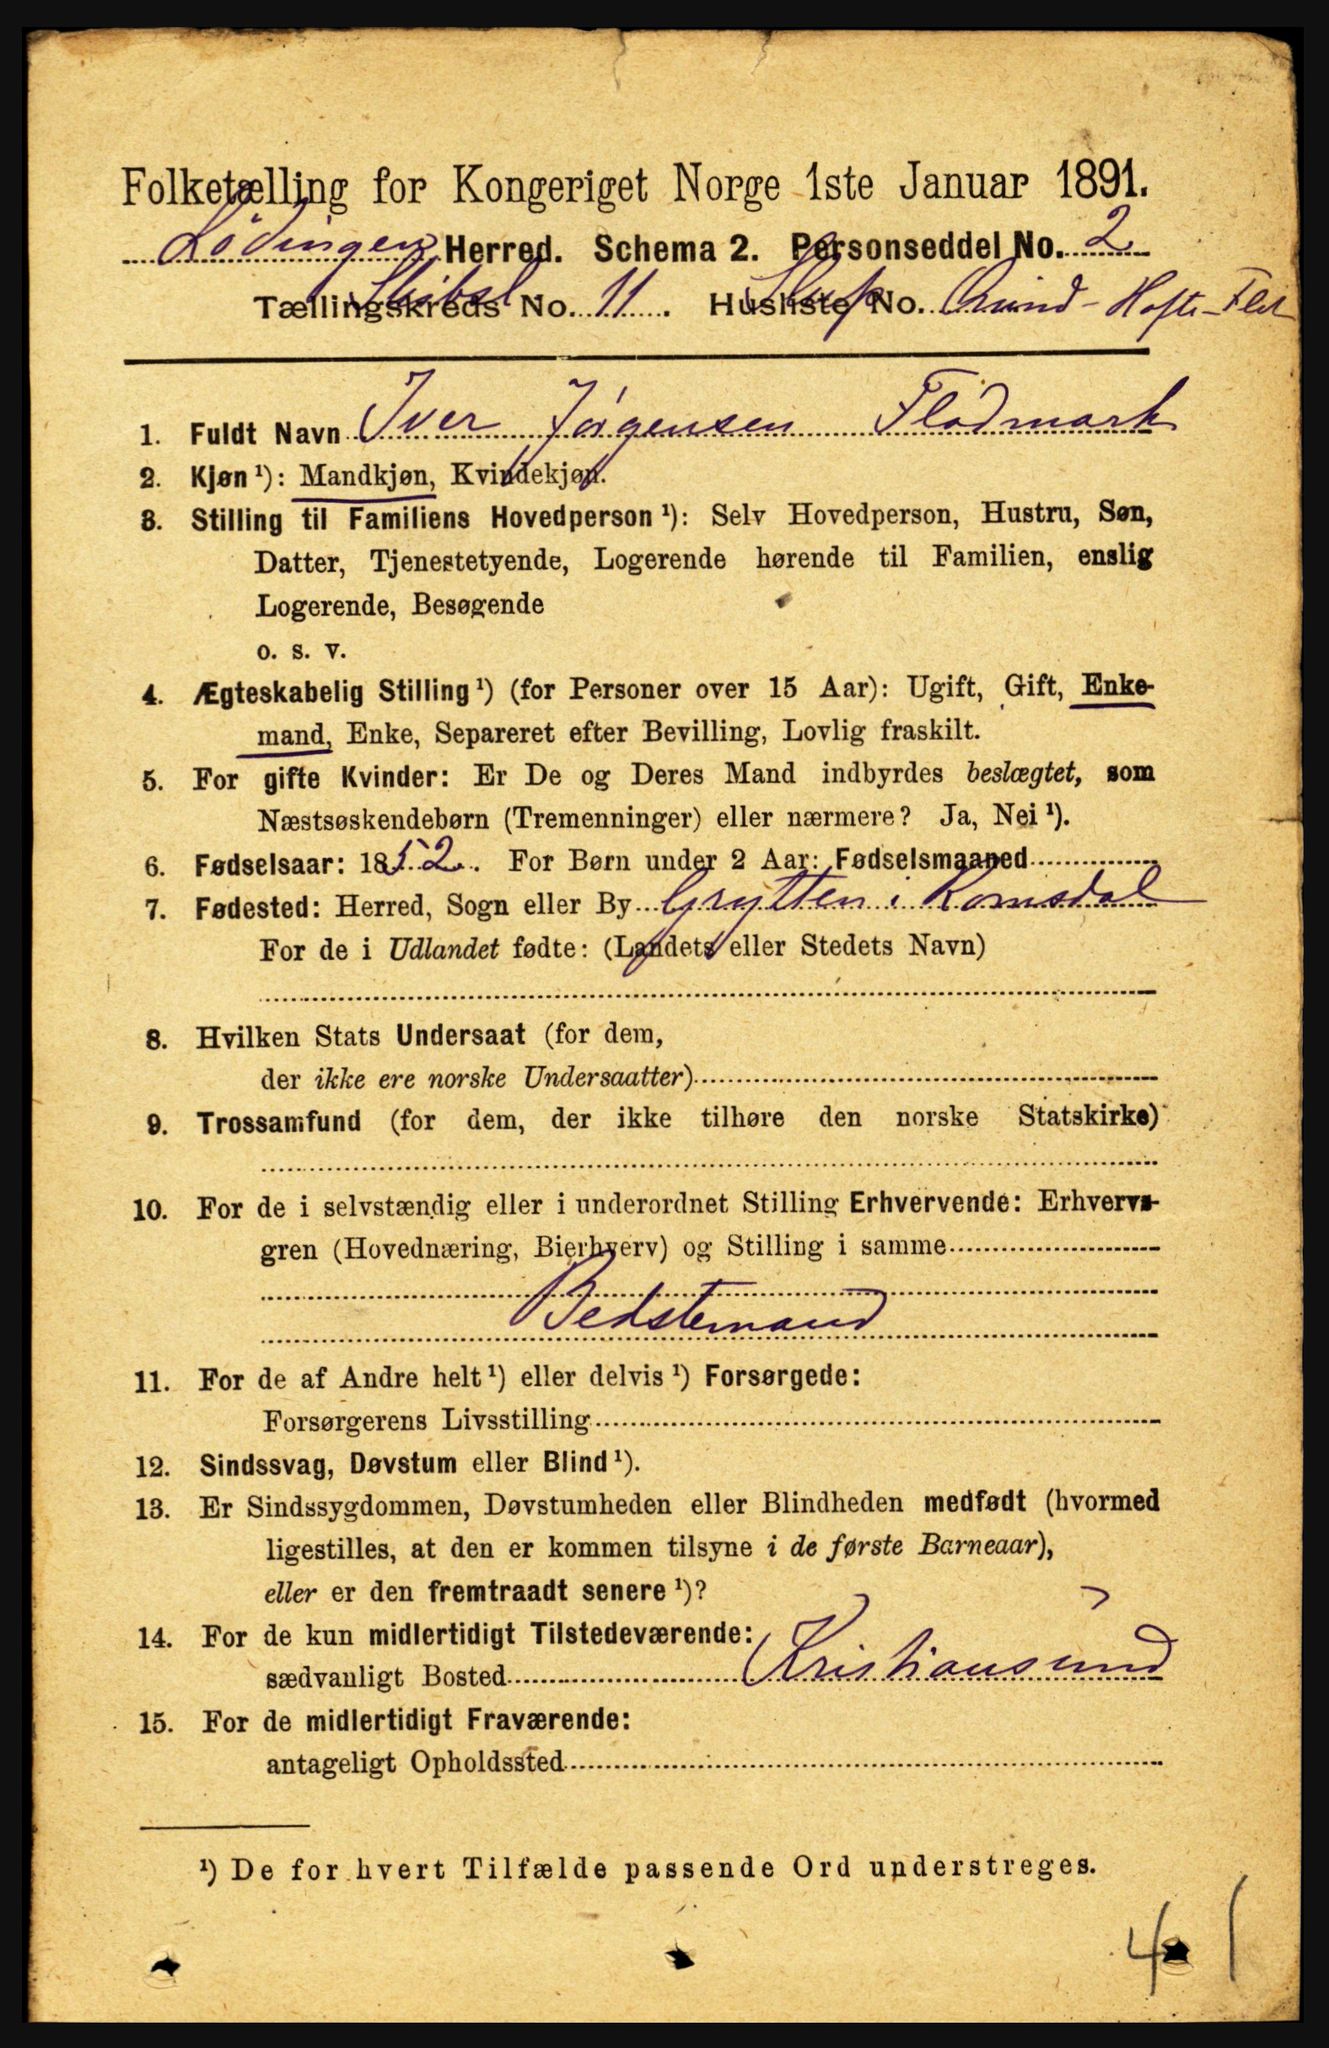 Folketælling for Kongeriget Norge 1ste Januar 1891.
Lødingen Herred. Schema 2. Personseddel No. 2
Tællingskreds No. 11. Husliste No.
1. Fuldt Navn Iver Jørgensen Flødmark
2. Kjøn ¹): Mandkjøn, Kvindekjøn.
3. Stilling til Familiens Hovedperson ¹): Selv Hovedperson, Hustru, Søn,
Datter, Tjenestetyende, Logerende hørende til Familien, enslig
Logerende, Besøgende
o. s. v.
4. Ægteskabelig Stilling ¹) (for Personer over 15 Aar): Ugift, Gift, Enke-
mand, Enke, Separeret efter Bevilling, Lovlig fraskilt.
5. For gifte Kvinder: Er De og Deres Mand indbyrdes beslægtet, som
Næstsøskendebørn (Tremenninger) eller nærmere? Ja, Nei ¹).
6. Fødselsaar: 1852. For Børn under 2 Aar: Fødselsmaaned
7. Fødested: Herred, Sogn eller By Grytten i Romsdal
For de i Udlandet fødte: (Landets eller Stedets Navn)
8. Hvilken Stats Undersaat (for dem,
der ikke ere norske Undersaatter)
9. Trossamfund (for dem, der ikke tilhøre den norske Statskirke)
10. For de i selvstændig eller i underordnet Stilling Erhvervende: Erhvervs-
gren (Hovednæring, Bierhverv) og Stilling i samme
Bedstemand
11. For de af Andre helt ¹) eller delvis ¹) Forsørgede:
Forsørgerens Livsstilling
12. Sindssvag, Døvstum eller Blind ¹).
13. Er Sindssygdommen, Døvstumheden eller Blindheden medfødt (hvormed
ligestilles, at den er kommen tilsyne i de første Barneaar),
eller er den fremtraadt senere ¹)?
14. For de kun midlertidigt Tilstedeværende:
sædvanligt Bosted Kristiansund
15. For de midlertidigt Fraværende:
antageligt Opholdssted
¹) De for hvert Tilfælde passende Ord understreges.
41